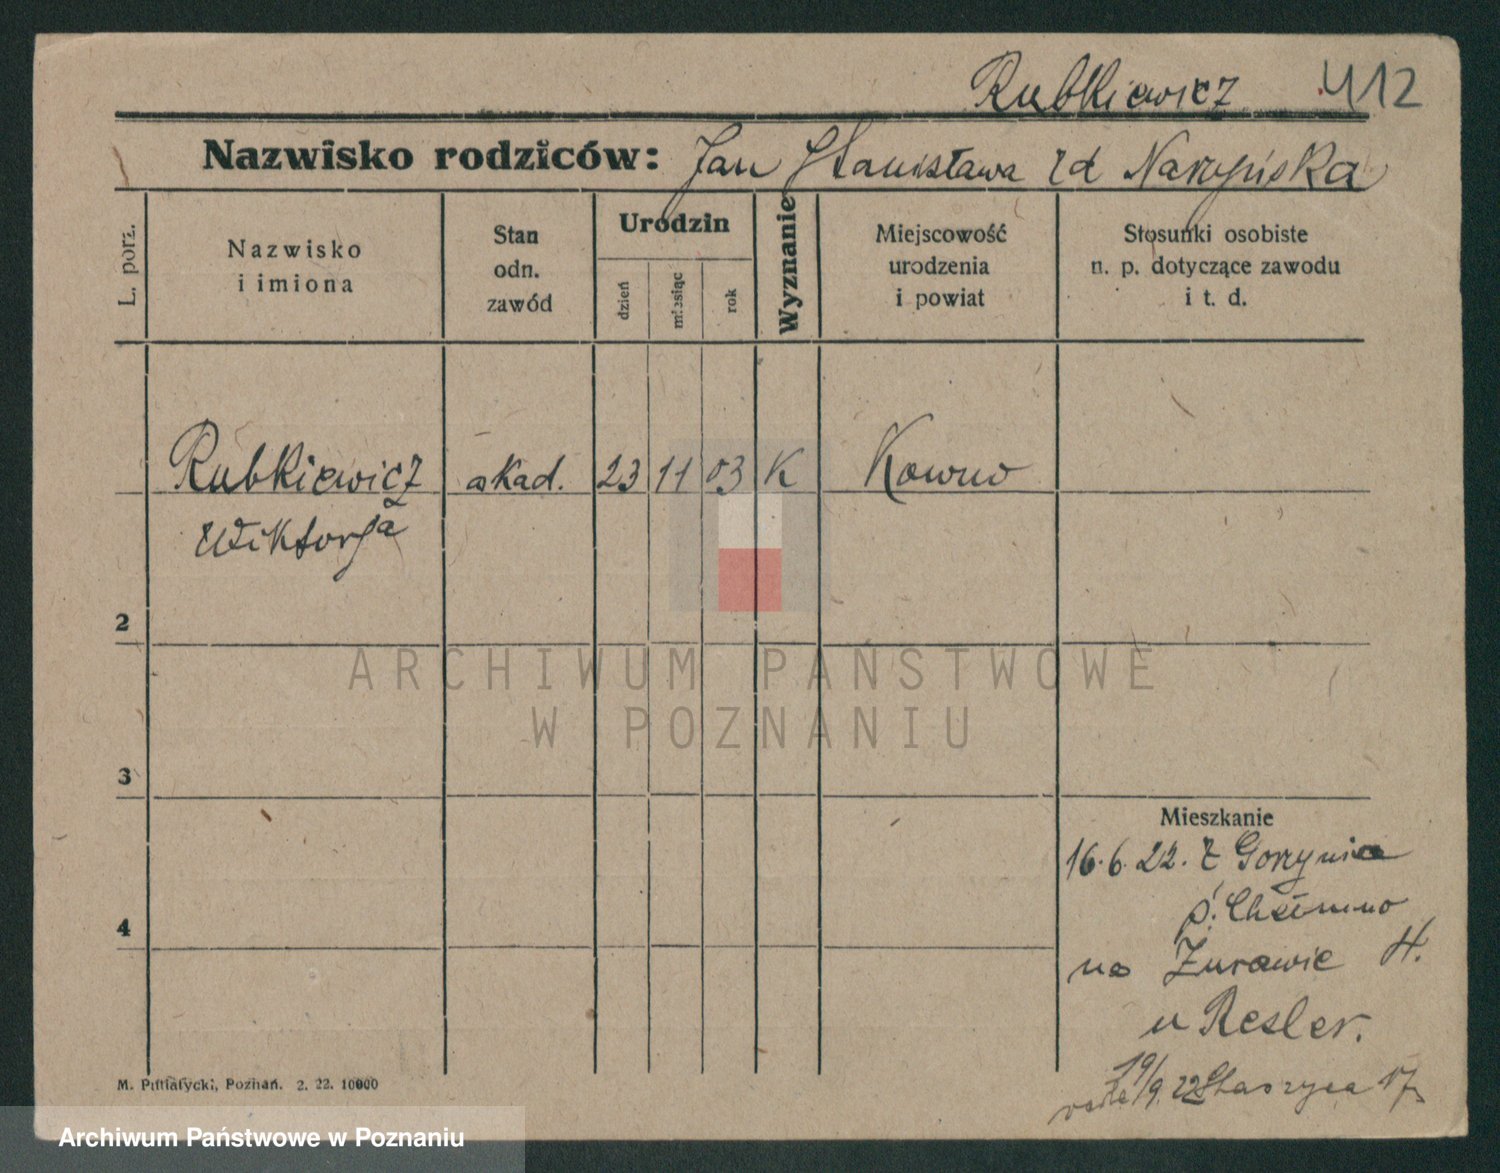 Rubkiewicz 412
Nazwisko rodziców: Jan Stanisława zd Narzyńska
L. porz.
Nazwisko
i imiona
Stan
odn.
zawód
Urodzin
dzień
miesiąc
rok
Wyznanie
Miejscowość
urodzenia
i powiat
Stosunki osobiste
n. p. dotyczące zawodu
i t. d.
Rubkiewicz akad. 23 11 03 K Kowno
Wiktorja
2
3
4
Mieszkanie
16.6.22. z Gorzynia
p. Chełmno
na Żurawie 4.
u Resler.
19/9.22 Staszyca 17
M. Putiatycki, Poznań. 2. 22. 10000
ARCHIWUM PAŃSTWOWE
W POZNANIU
Archiwum Państwowe w Poznaniu